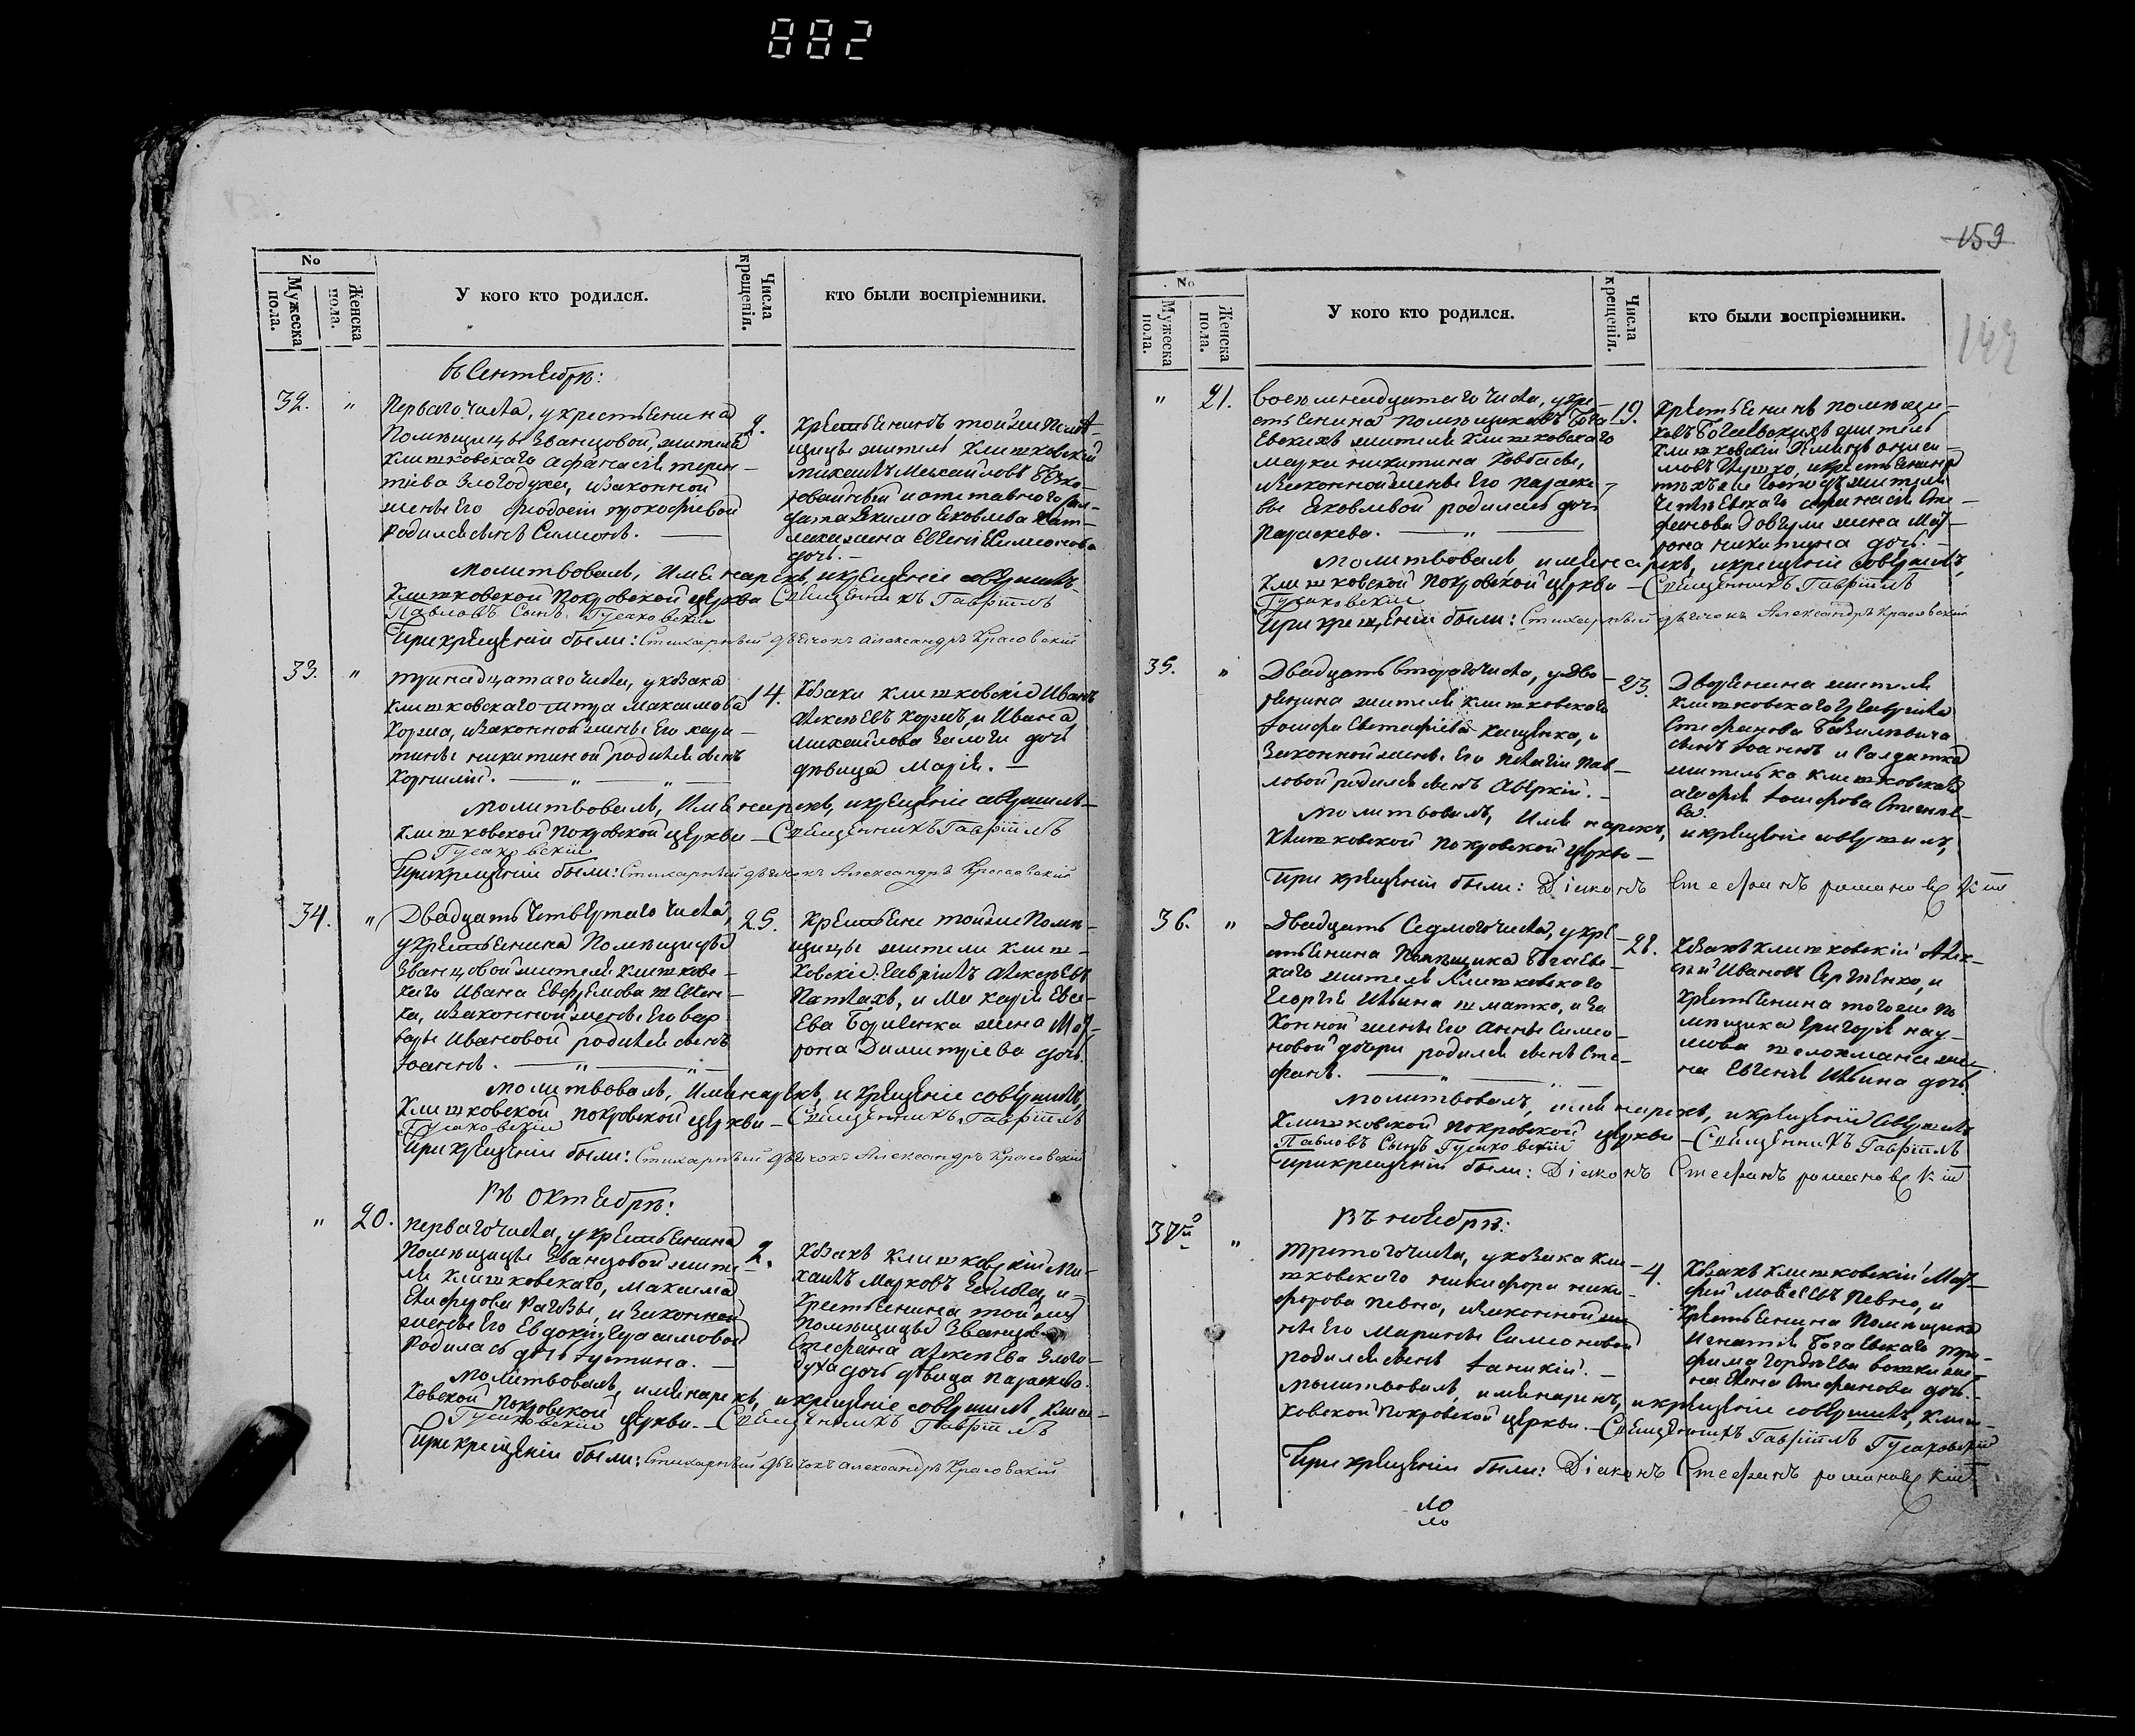 882
No
Мужеска пола.
Женска пола.
У кого кто родился.
Числа крещенія.
кто были воспріемники.
въ Сентябрѣ:
32. "
Перваго числа, у крестьянина
Помѣщицы Званцовой, жителя
Клишковскаго Афанасія терен-
тіева Злогодуха, и законной
жены Его Феодосіи прокофіевой
родился сынъ Симонъ. —
2.
Крестьянинъ тойже Помѣ-
щицы житель Клишковскій
Михаилъ Михайловъ
и отставнаго сол-
дата Якима Яковлева
жена Евгенія Симонова
дочь. —
молитвовалъ, Имя нарекъ, и крещеніе совершилъ
Клишковской Покровской церкви Священникъ Гавріилъ
Павловъ Сынъ Гусаковскій
При крещеніи были: Стихарный дьячокъ Александръ Красовскій
33. "
тринадцатаго числа, у козака
Клишковскаго Петра Максимова
Коржа, и законной жены Его хари-
тины никитиной родился сынъ
Корнилій. — " — " —
14.
Козаки клишковскіе Иванъ
Алексѣевъ Коржъ, и Ивана
михайлова дочь
дѣвица Марія. —
молитвовалъ, Имя нарекъ, и крещеніе совершилъ
Клишковской Покровской церкви — Священникъ Гавріилъ
Гусаковскій
При крещеніи были: Стихарный дьячокъ Александръ Красовскій
34. "
Двадцать четвертаго числа,
у крестьянина Помѣщицы
Званцовой жителя клишковс-
каго Ивана Ефремова Шевчен-
ка, и законной жены Его вар-
вары Ивановой родился сынъ
Іоаннъ. — " — " —
25.
Крестьяне тойже Помѣ-
щицы жители клиш-
ковскіе: Гавріилъ Алексѣевъ
Паталахъ, и Макарія Евсе-
ева жена Мат-
рона Димитріева дочь.
молитвовалъ, Имя нарекъ, и крещеніе совершилъ,
Клишковской Покровской церкви — Священникъ Гавріилъ
Гусаковскій
При крещеніи были: Стихарный дьячокъ Александръ Красовскій
Въ Октябрѣ:
" 20.
перваго числа, у крестьянина
Помѣщицы Званцовой жите-
ля клишковскаго, Максима
Рагозы, и законной
жены Его Евдокіи Герасимовой
родилась дочь Іустина. —
2.
Козакъ клишковскій Ми-
хаилъ Марковъ и
Крестьянина тойже
Помѣщицы Званцовой
Стефана Алексѣева Злого-
духа дочь дѣвица Параскева.
молитвовалъ, имя нарекъ, и крещеніе совершилъ, клиш-
ковской Покровской церкви. — Священникъ Гавріилъ
Гусаковскій
При крещеніи были: Стихарный дьячокъ Александръ Красовскій
159
No
Мужеска пола.
Женска пола.
У кого кто родился.
Числа крещенія.
кто были воспріемники.
" 21.
восемнадцатаго числа, у кре-
стьянина помѣщиковъ Бога-
евскихъ жителя клишковскаго
марка никитина
и законной жены Его параске-
вы Яковлевой родилась дочь
Параскева. — " —
19.
Крестьянинъ помѣщи-
ковъ Богаевскихъ житель
клишковскій
и крестьянина
тѣхъ же господъ жителя
Сте-
фанова жена Мат-
рона никитина дочь. —
молитвовалъ, имя нарекъ, и крещеніе совершилъ,
Клишковской Покровской церкви — Священникъ Гавріилъ
Гусаковскій
При крещеніи были: Стихарный дьячокъ Александръ Красовскій
35. "
Двадцать втораго числа, у Дво-
рянина жителя клишковскаго
Іосифа Евстафіева Кащенка, и
Законной жены Его Пелагіи Пав-
ловой родился сынъ Аверкій. —
23.
Дворянина жителя
клишковскаго
Стефанова Базилевича
сынъ Іоаннъ и Салдатка
жителька клишковская
Агафія Іосифова
молитвовалъ, Имя нарекъ, и крещеніе совершилъ,
Клишковской Покровской церкви —
При крещеніи были: Діаконъ Стефанъ романовскій
36. "
Двадцать Седмаго числа, у кре-
стьянина Помѣщика Богаевс-
каго жителя Клишковскаго
Георгія Ильина и за-
конной жены Его Анны Симо-
новой дочери родился сынъ Сте-
фанъ. — " — " —
28.
Козакъ клишковскій Алек-
сѣй Ивановъ Сергѣенко, и
Крестьянина тогоже по-
мѣщика Григорія нау-
мова же-
на Евгенія Ильина дочь.
молитвовалъ, имя нарекъ, и крещеніе совершилъ
Клишковской Покровской церкви — Священникъ Гавріилъ
Павловъ Сынъ Гусаковскій
При крещеніи были: Діаконъ Стефанъ романовскій
Въ ноябрѣ:
37й "
Третьего числа, у козака кли-
шковскаго никифора ники-
форова Певна, и законной же-
ны Его Марины Симоновой
родился сынъ Іаникій. —
4.
Козакъ клишковскій Мат-
фей Певно, и
Крестьянина Помѣщика
Игнатія Богаевскаго тро-
фима же-
на Елена Стефанова дочь. —
молитвовалъ, имя нарекъ, и крещеніе совершилъ, клиш-
ковской Покровской церкви. — Священникъ Гавріилъ Гусаковскій
При крещеніи были: Діаконъ Стефанъ романовскій